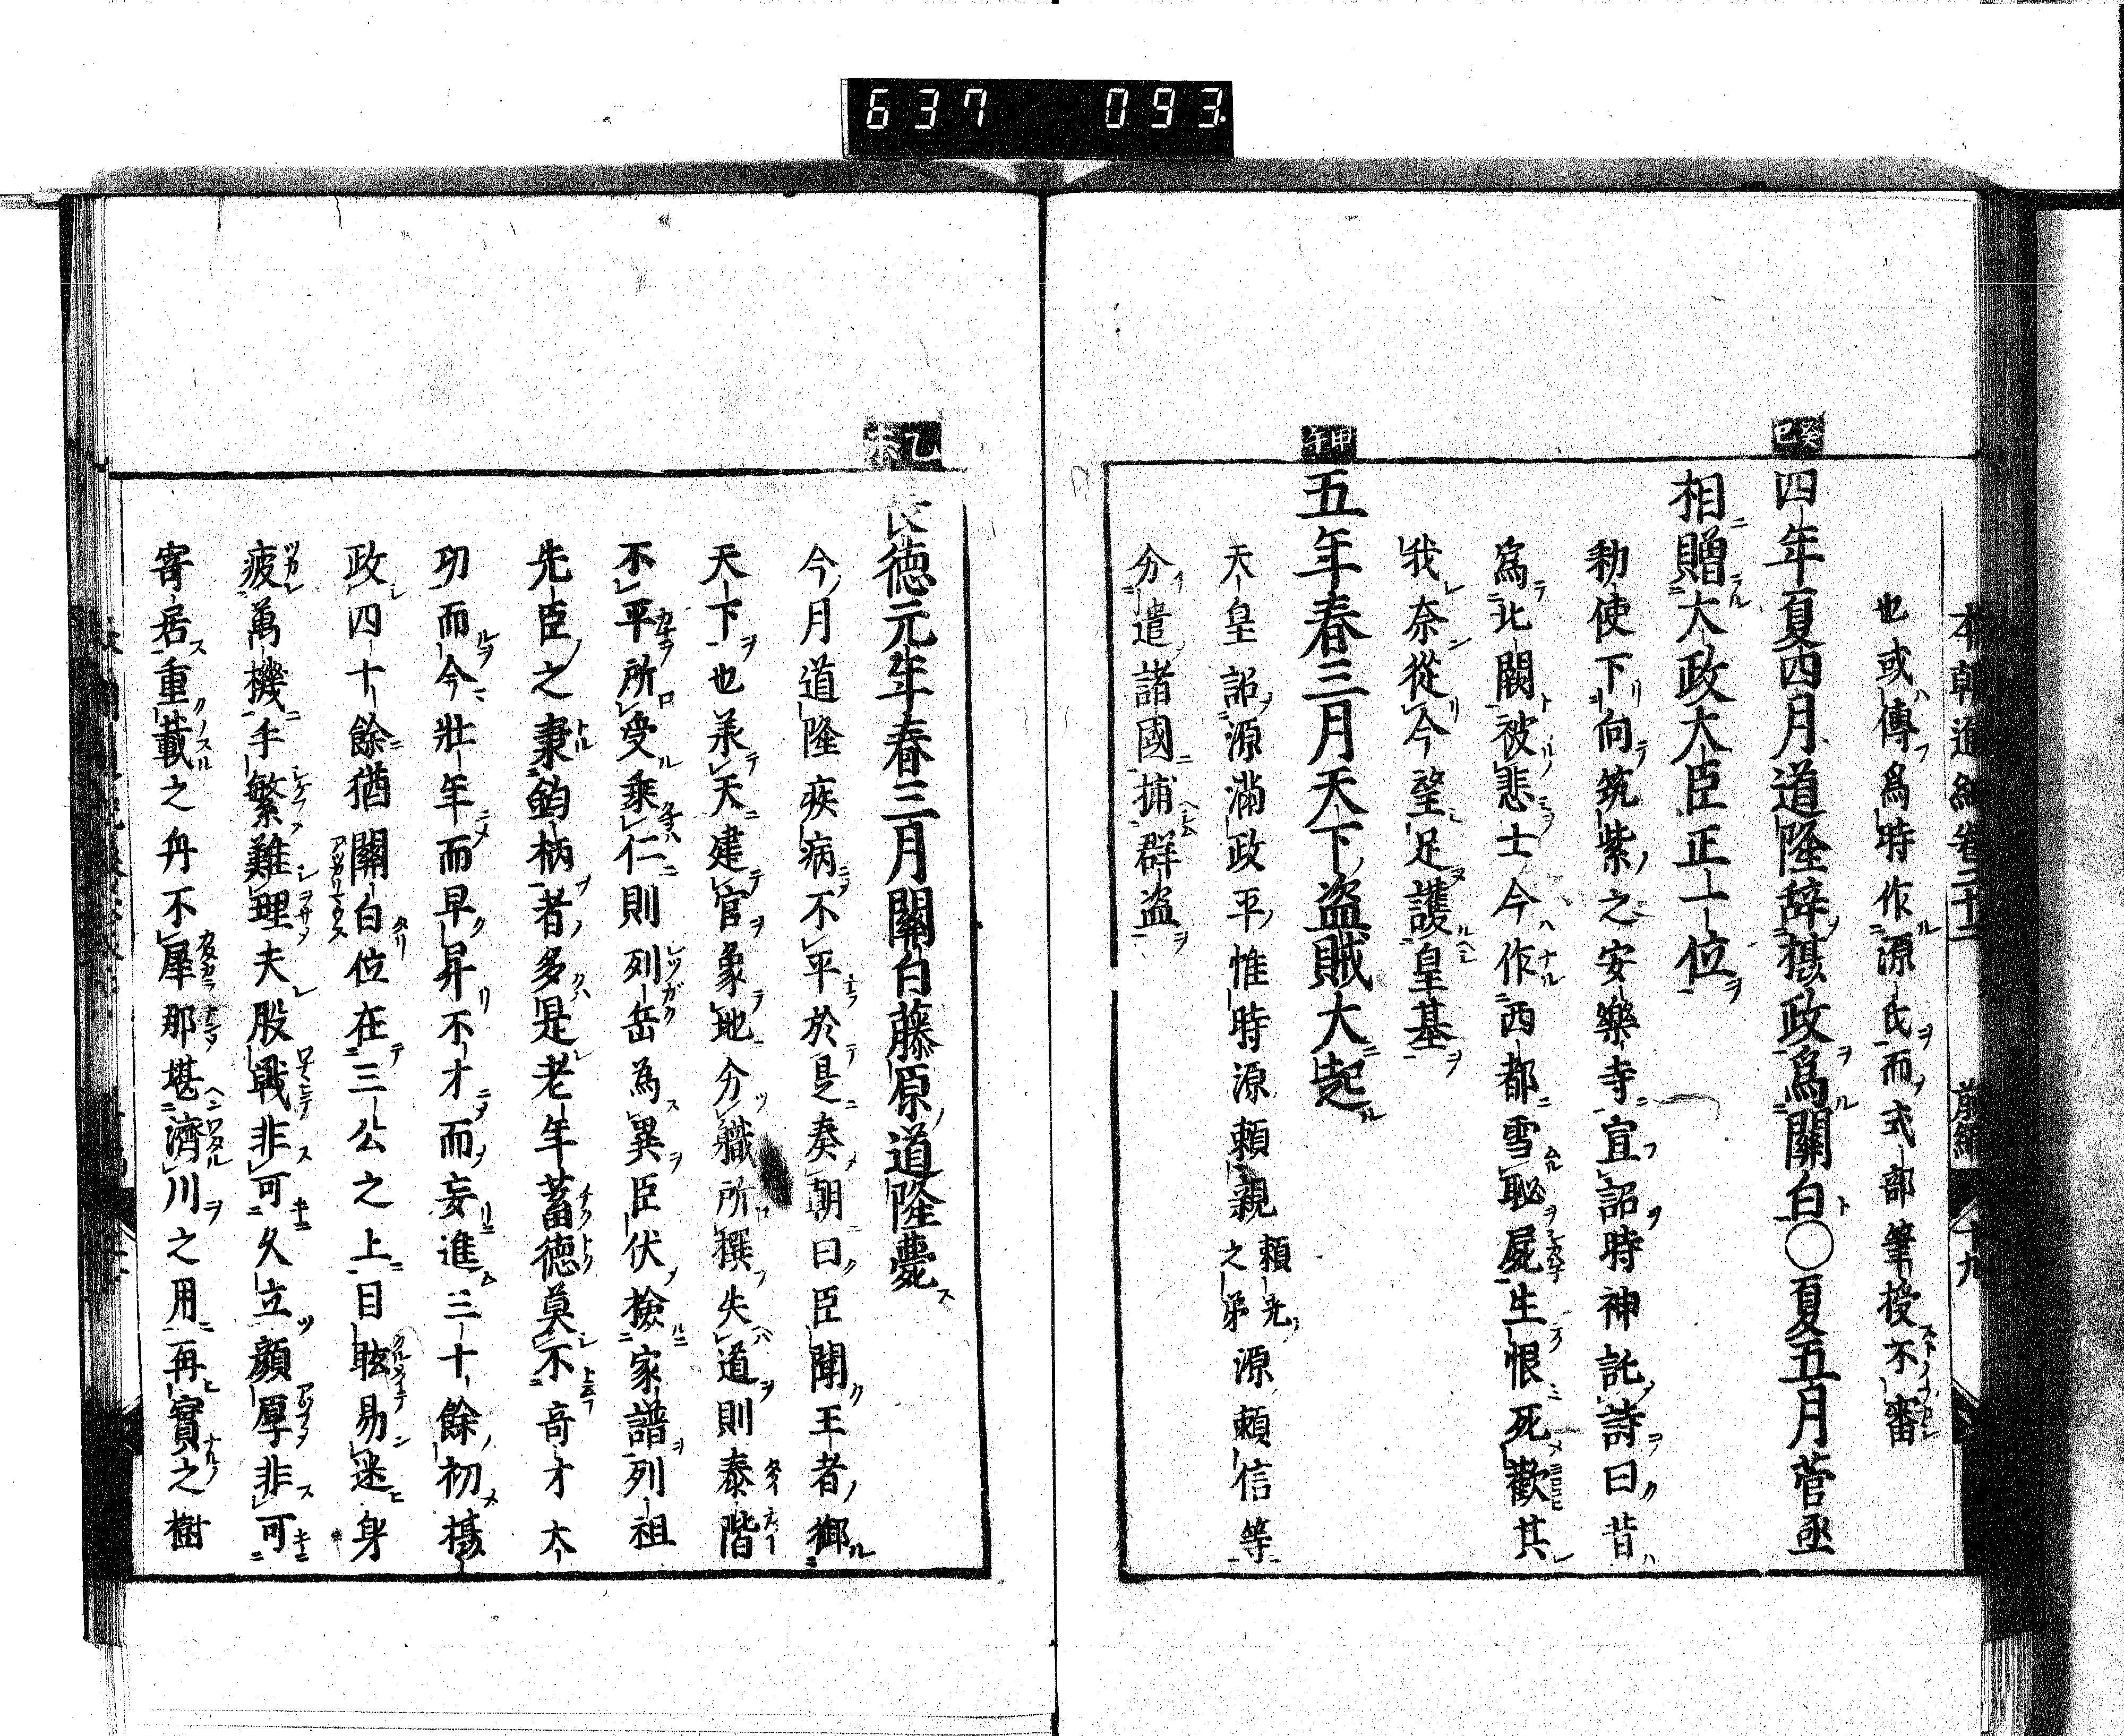 637 093
本朝通紀卷二十二 前編 十九
也或傳爲時作源氏而式部筆授不審
癸巳
四年夏四月道隆辞摂政爲關白○夏五月菅丞
相贈大政大臣正一位
勅使下向筑紫之安樂寺宣詔時神託詩曰昔
爲北闕被悲士今作西都雪恥屍生恨死歡其
我奈從今望足護皇基
甲午
五年春三月天下盗賊大起
天皇詔源満政平惟時源頼親頼光之弟源頼信等
分遣諸國捕群盗
乙未
長徳元年春三月關白藤原道隆薨
今月道隆疾病不平於是奏朝曰臣聞王者御
天下也承天建官象地分職所撰失道則泰階
不平所受乗仁則列岳為異臣伏撿家譜列祖
先臣之秉鈞柄者多是老年蓄徳莫不奇才大
功而今壯年而早昇不才而妄進三十餘初摂
政四十餘猶關白位在三公之上目眩易迷身
疲萬機手繁難理夫股戰非可久立顔厚非可
寄居重載之舟不犀那堪濟川之用再實之樹